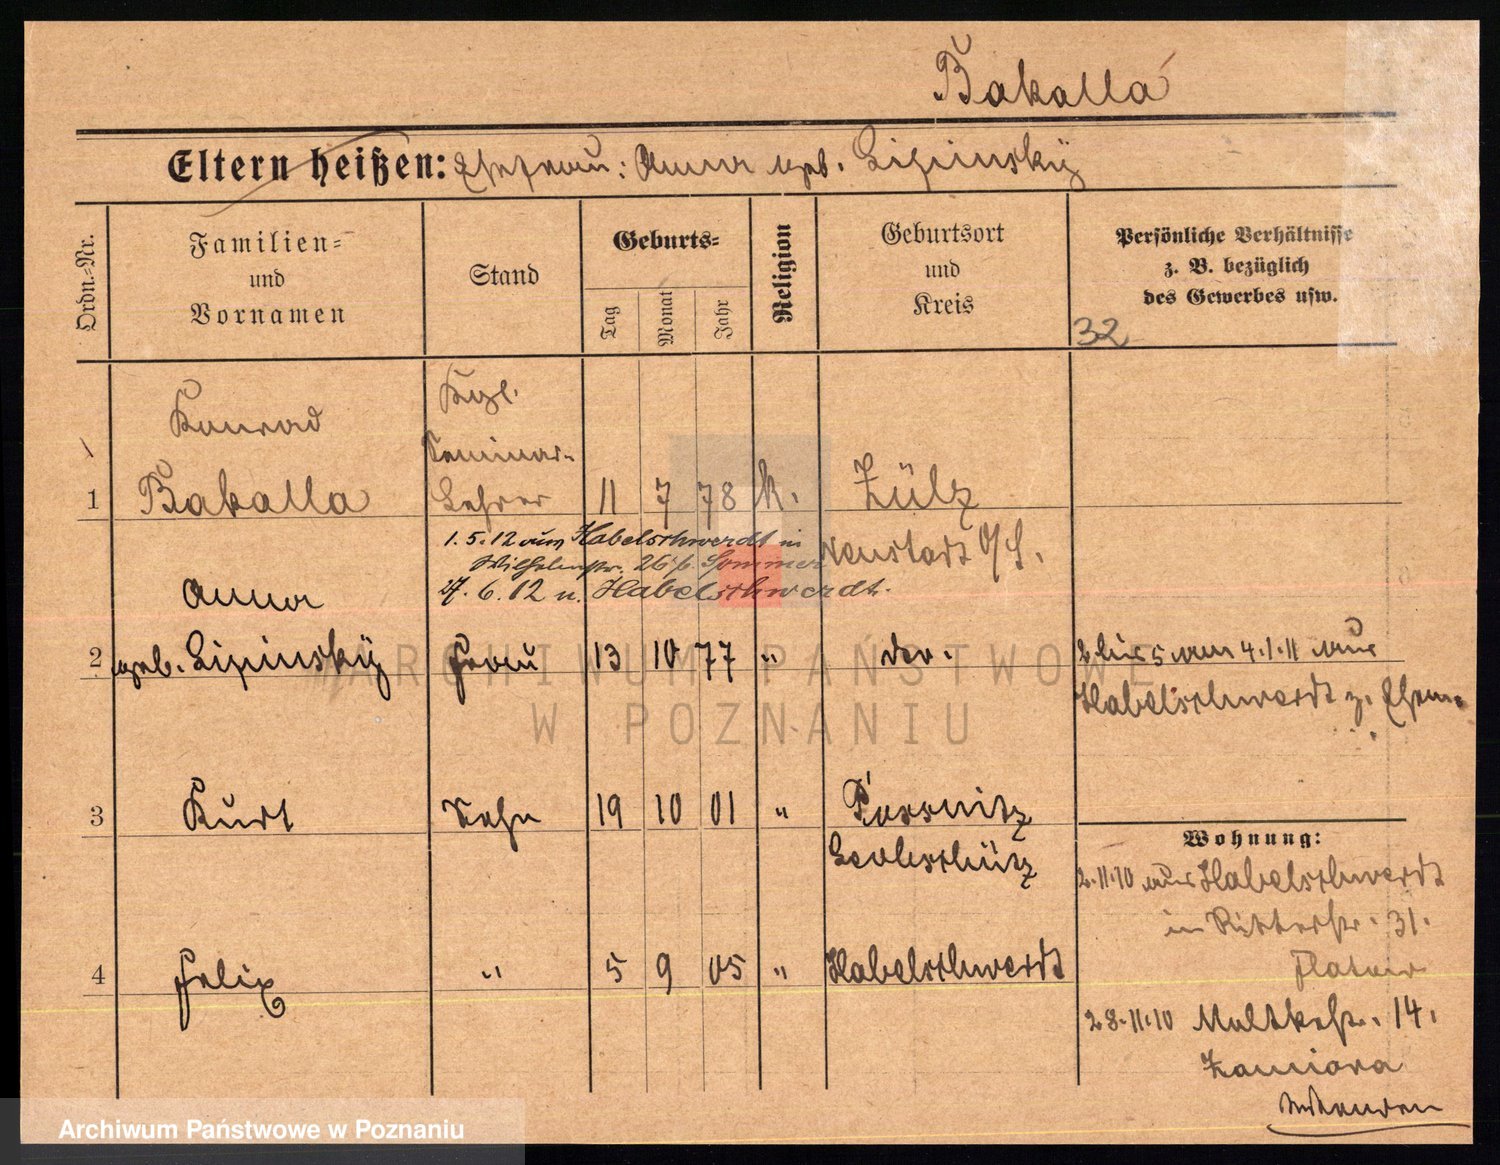 Bakalla
Eltern heißen: Ehefrau: Anna geb. Lipinsky
Ordn.=Nr.
Familien=
und
Vornamen
Stand
Geburts=
Tag
Monat
Jahr
Religion
Geburtsort
und
Kreis
Persönliche Verhältnisse
z. B. bezüglich
des Gewerbes usw.
32
Konrad
Kgl.
Seminar-
1 Bakalla Lehrer 11 7 78 k. Zülz
Neustadt O/S.
1.5.12 aus Habelschwerdt in
Wilhelmstr. 26 b. Sommer
27.6.12 n. Habelschwerdt.
Anna
2 geb. Lipinsky Frau 13 10 77 " do. 2 bis 5 am 4.1.11 aus
Habelschwerdt z. Ehem.
3 Kurt Sohn 19 10 01 " Possnitz
Leobschütz
4 Felix " 5 9 05 " Habelschwerdt
Wohnung:
2.11.10 aus Habelschwerdt
in Ritterstr. 31.
28.11.10 Moltkestr. 14.
ARCHIWUM PAŃSTWOWE
W POZNANIU
Archiwum Państwowe w Poznaniu